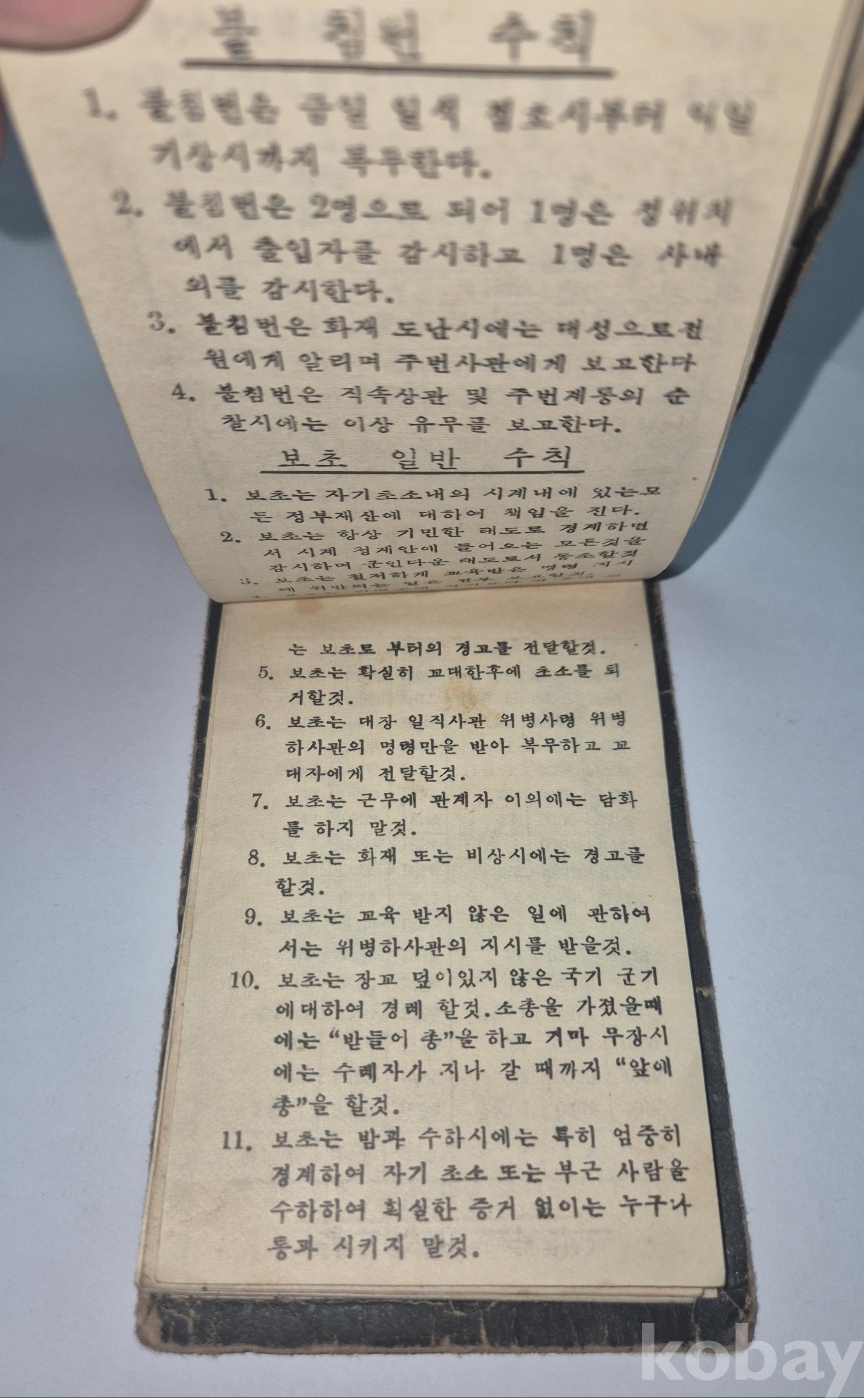 불침번 수칙
1. 불침번은 금일 일석 점호시부터 익일
기상시까지 복무한다.
2. 불침번은 2명으로 되어 1명은 정위치
에서 출입자를 감시하고 1명은 사내
외를 감시한다.
3. 불침번은 화재 도난시에는 대성으로전
원에게 알리며 주번사관에게 보고한다
4. 불침번은 직속상관 및 주번계통의 순
찰시에는 이상 유무를 보고한다.
보초 일반 수칙
1. 보초는 자기초소내의 시계내에 있는모
든 정부재산에 대하여 책임을 진다.
2. 보초는 항상 기민한 태도로 경계하면
서 시계 청계안에 들어오는 모든것을
감시하며 군인다운 태도로서 동초할것
3. 보초는 철저하게 교육받은 명령 지시
는 보초로 부터의 경고를 전달할것.
5. 보초는 확실히 교대한후에 초소를 퇴
거할것.
6. 보초는 대장 일직사관 위병사령 위병
하사관의 명령만을 받아 복무하고 교
대자에게 전달할것.
7. 보초는 근무에 관계자 이의에는 담화
를 하지 말것.
8. 보초는 화재 또는 비상시에는 경고를
할것.
9. 보초는 교육 받지 않은 일에 관하여
서는 위병하사관의 지시를 받을것.
10. 보초는 장교 덮이있지 않은 국기 군기
에대하여 경례 할것.소총을 가졌을때
에는 “받들어 총”을 하고 기마 무장시
에는 수례자가 지나 갈 때까지 “앞에
총”을 할것.
11. 보초는 밤과 수하시에는 특히 엄중히
경계하여 자기 초소 또는 부근 사람을
수하하여 획실한 증거 없이는 누구나
통과 시키지 말것.
kobay